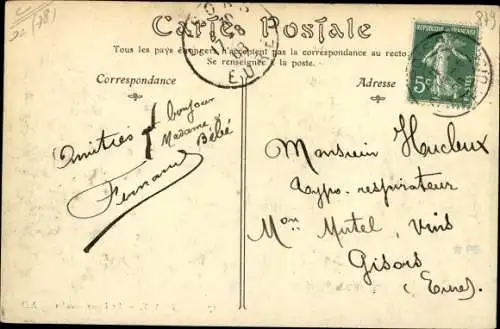 Cartes Postales
Tous les pays étrangers n'acceptent pas la correspondance au recto.
Se renseigner à la poste.
Correspondance
Adresse
REPUBLIQUE FRANÇAISE
5c
POSTES
EURE
Amitiés et bonjour
Madame &
Bébé
Fernand
Monsieur Haucleux
respirateur
Mon Mutel, Vins
Gisors
(Eure)